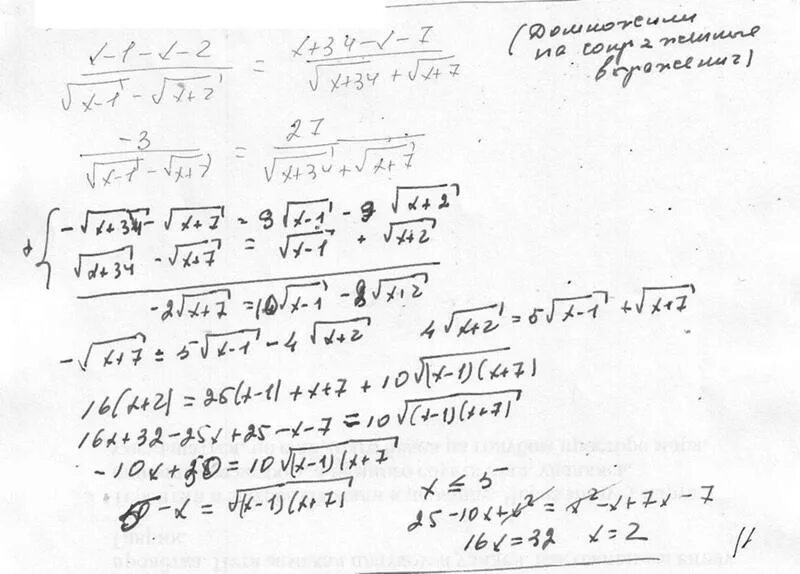 (x-1-x-2)/(√(x-1) - √(x+2)) = (x+34-x-7)/(√(x+34) + √(x+7)) (Домножили на сопряженные выражения)
-3/(√(x-1) - √(x+7)) = 27/(√(x+34) + √(x+7))
+ { -√(x+34) - √(x+7) = 9√(x-1) - 9√(x+2)
√(x+34) - √(x+7) = √(x-1) + √(x+2)
-2√(x+7) = 10√(x-1) - 8√(x+2)
-√(x+7) = 5√(x-1) - 4√(x+2) 4√(x+2) = 5√(x-1) + √(x+7)
16(x+2) = 25(x-1) + x+7 + 10√((x-1)(x+7))
16x+32-25x+25-x-7 = 10√((x-1)(x+7))
-10x+50 = 10√((x-1)(x+7))
5-x = √((x-1)(x+7)) x ≤ 5
25-10x+x² = x²-x+7x-7
16x=32 x=2